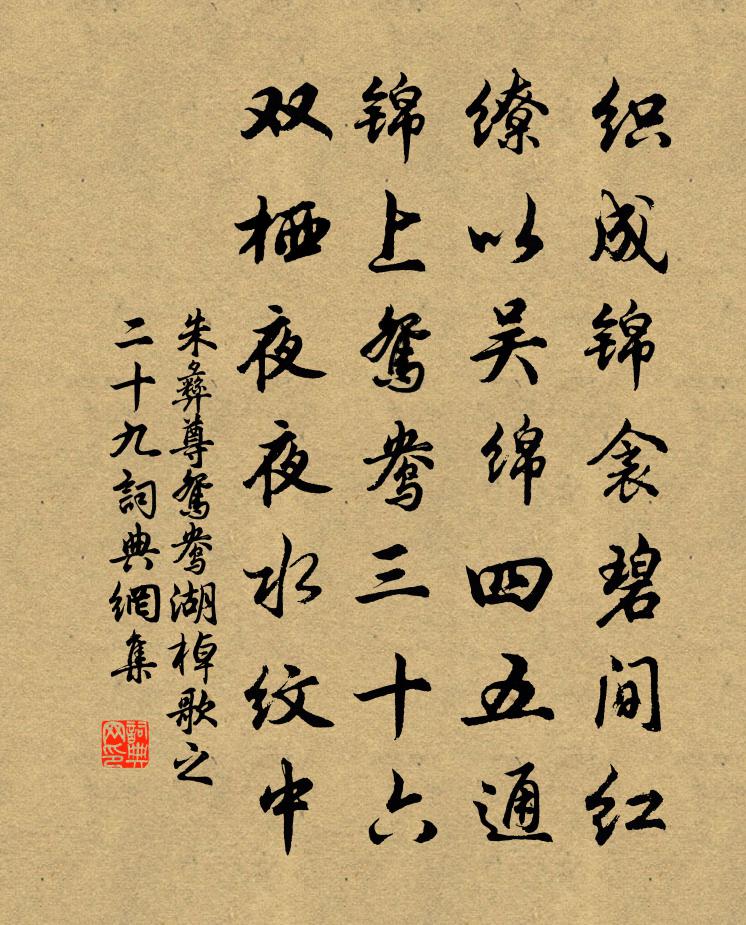 织成锦衾碧间红
缭以吴绵四五通
锦上鴛鴦三十六
双栖夜夜水纹中
朱彝尊鴛鴦湖棹歌之
二十九詞典網集
詞典网印